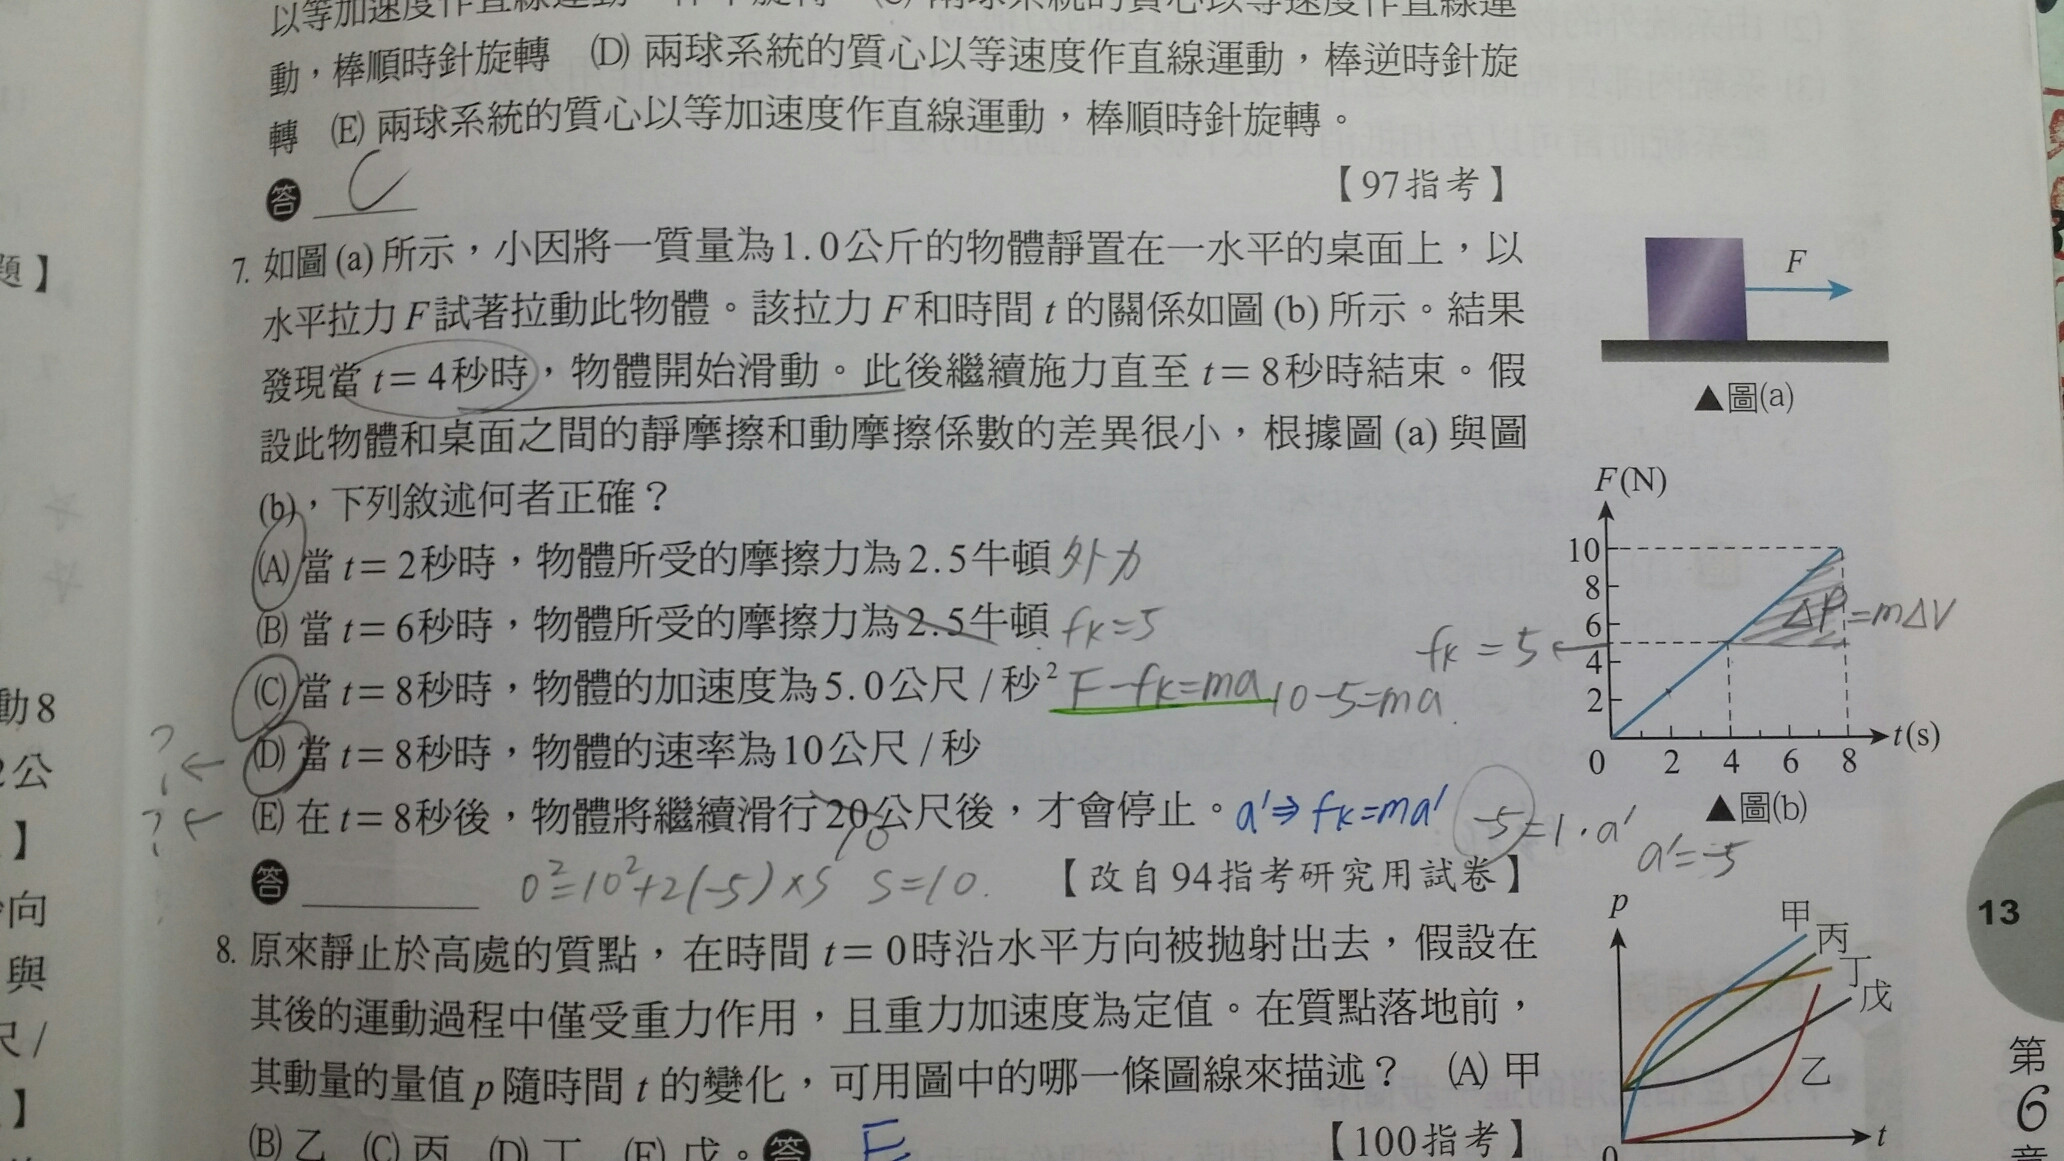 以等加速度作直線運動
動，棒順時針旋轉 (D) 兩球系統的質心以等速度作直線運動，棒逆時針旋
轉 (E) 兩球系統的質心以等加速度作直線運動，棒順時針旋轉。
答 C
【97指考】
7. 如圖(a)所示，小因將一質量為1.0公斤的物體靜置在一水平的桌面上，以
水平拉力F試著拉動此物體。該拉力F和時間t的關係如圖(b)所示。結果
發現當t=4秒時，物體開始滑動。此後繼續施力直至t=8秒時結束。假
設此物體和桌面之間的靜摩擦和動摩擦係數的差異很小，根據圖(a)與圖
(b)，下列敘述何者正確？
(A) 當t=2秒時，物體所受的摩擦力為2.5牛頓 外力
(B) 當t=6秒時，物體所受的摩擦力為2.5牛頓 fk=5
(C) 當t=8秒時，物體的加速度為5.0公尺/秒² F-fk=ma 10-5=ma
? ← (D) 當t=8秒時，物體的速率為10公尺/秒
? ← (E) 在t=8秒後，物體將繼續滑行20公尺後，才會停止。 a'⇒fk=ma' -5=1·a'
10
a'=-5
答 0²=10²+2(-5)×S S=10.
【改自94指考研究用試卷】
F
▲圖(a)
F(N)
10
8
6
4
2
0 2 4 6 8
t(s)
ΔP=mΔV
fk=5←
▲圖(b)
8. 原來靜止於高處的質點，在時間t=0時沿水平方向被拋射出去，假設在
其後的運動過程中僅受重力作用，且重力加速度為定值。在質點落地前，
其動量的量值p隨時間t的變化，可用圖中的哪一條圖線來描述？ (A) 甲
(B) 乙 (C) 丙 (D) 丁 (E) 戊。答 E
【100指考】
p
甲
丙
丁
戊
乙
t
0
13
第
6
章
題】
動8
2公
】
向
與
尺/
】